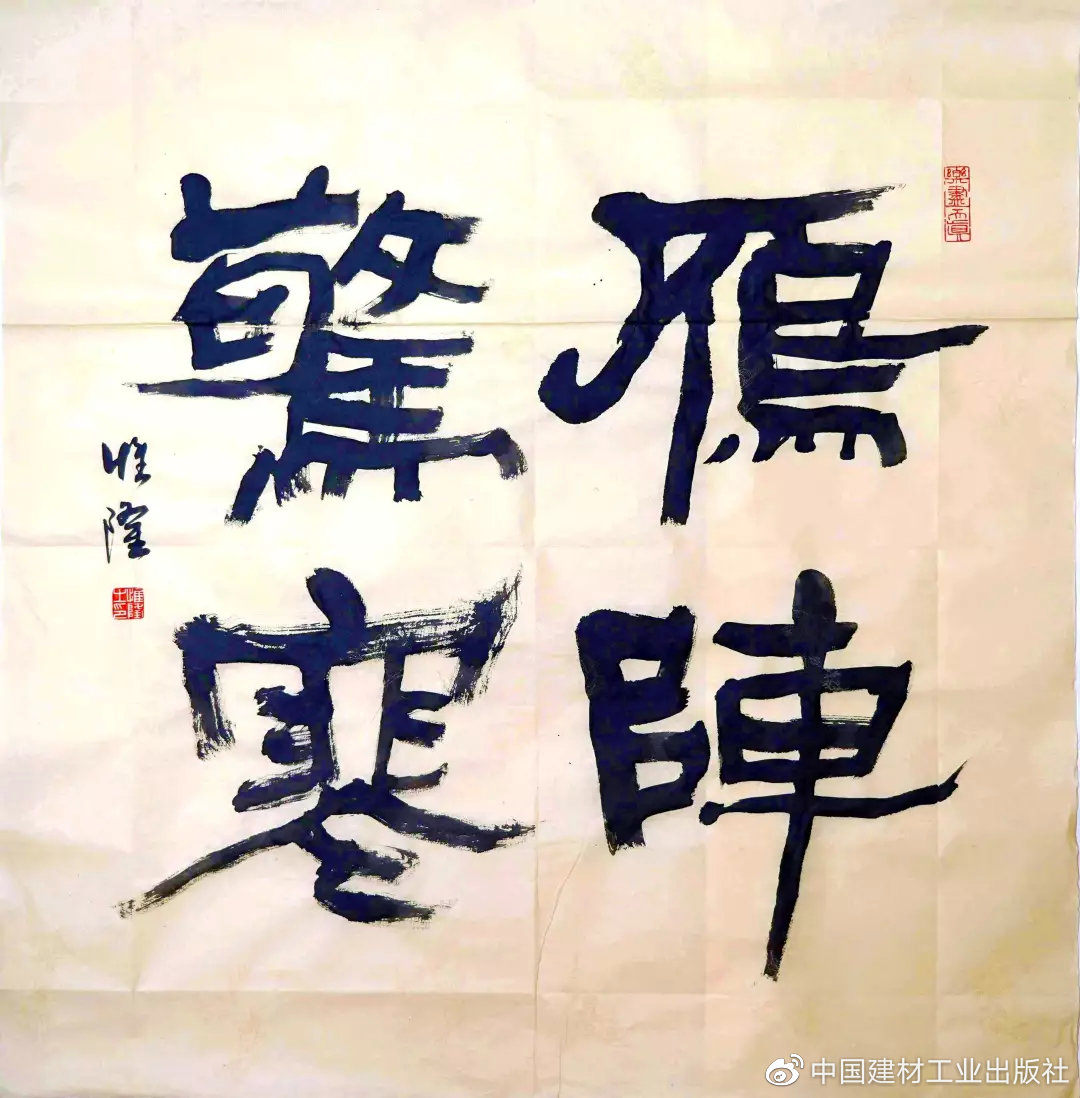 鴈陣
驚寒
惟隆
中国建材工业出版社